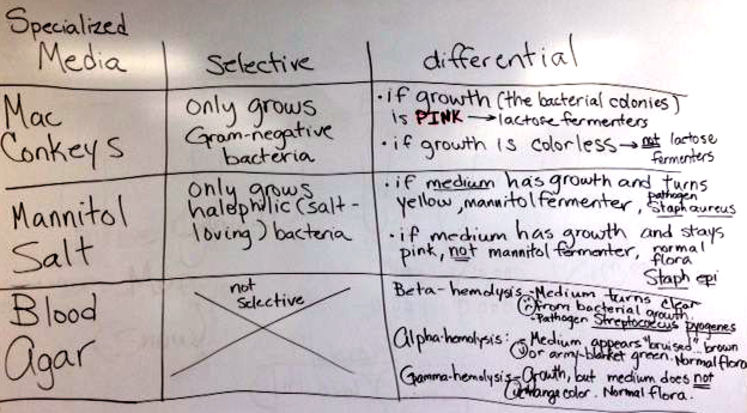 Specialized
Media
Selective
differential
Mac
Conkeys
only grows
Gram-negative
bacteria
• if growth (the bacterial colonies)
is PINK → lactose fermenters
• if growth is colorless → not lactose
fermenters
Mannitol
Salt
only grows
halophilic (salt-
loving) bacteria
• if medium has growth and turns
yellow, mannitol fermenter, pathogen
Staph aureus
• if medium has growth and stays
pink, not mannitol fermenter, normal
flora
Staph epi
Blood
Agar
not
selective
Beta-hemolysis - Medium turns clear
from bacterial growth.
Pathogen Streptococcus pyogenes
Alpha-hemolysis: Medium appears "bruised" brown
or army-blanket green. Normal flora
Gamma-hemolysis - Growth, but medium does not
change color. Normal flora.